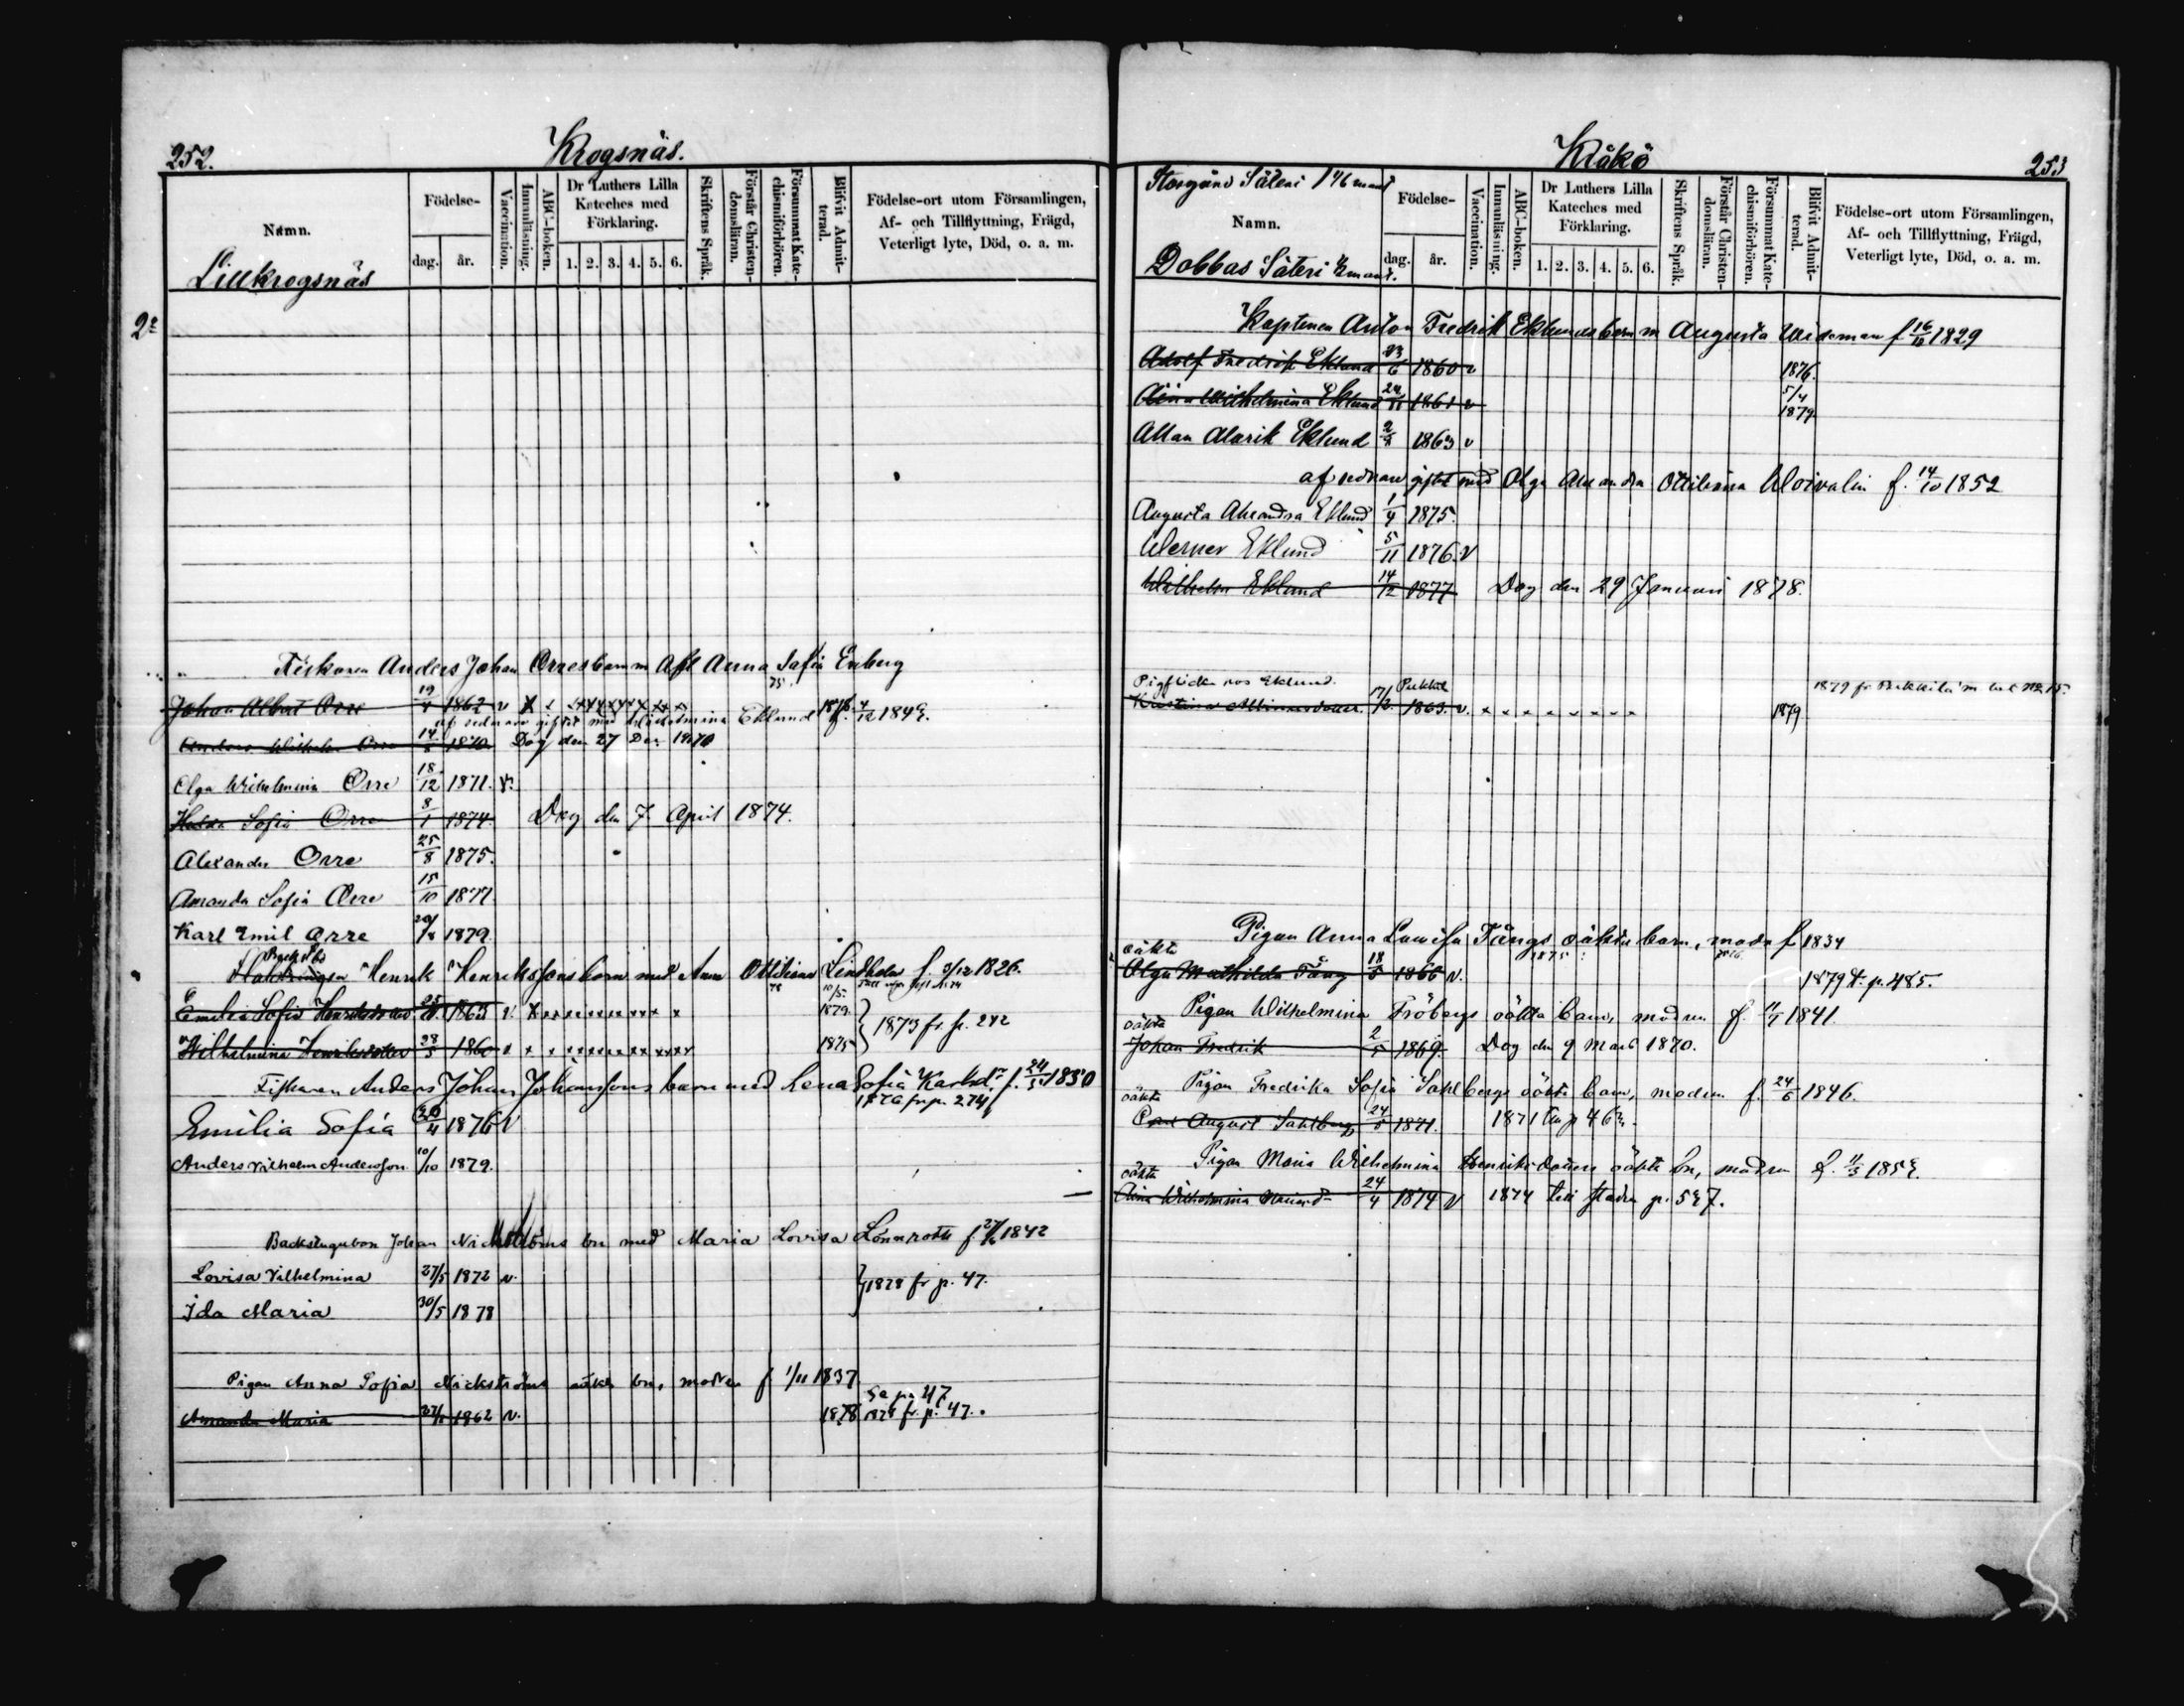 252.
Krogsnäs.
Namn.
Födelse-
dag. år.
Vaccination.
Innanläsning.
ABC-boken.
Dr Luthers Lilla Kateches med Förklaring.
1. 2. 3. 4. 5. 6.
Skriftens Språk.
Förstår Christendomsläran.
Försummat Katechismiförhören.
Blifvit Admitterad.
Födelse-ort utom Församlingen,
Af- och Tillflyttning, Frägd,
Veterligt lyte, Död, o. a. m.
Lillkrogsnäs
Fiskaren Anders Johan Orres barn m Afl Anna Sofia Enberg
Johan Albert Orre 19/4 1862 v
af sednare giftet med Wilhelmina Eklund f. 4/12 1849.
Anders Wilhelm Orre 14/8 1870 Dog den 27 Dec 1870
Olga Wilhelmina Orre 18/12 1871. v.
Hulda Sofia Orre 8/1 1874. Dog den 7 April 1874.
Alexander Orre 25/8 1875.
Amanda Sofia Orre 15/10 1877.
Karl Emil Orre 29/8 1879.
Henrik Henrikssons barn med Anna Ottiliana Lindholm f. 3/12 1826.
Emilia Sofia Henriksdotter 1863 v x x x x x x x x x x 10/5 1879.
Wilhelmina Henriksdotter 28/5 1860 v x x x x x x x x x x 1875 } 1873 fr. p. 242
Fiskaren Anders Johan Johanssons barn med Lena Sofia Karlsdr f. 24/5 1850
1876 fr. p. 274
Emilia Sofia 30/4 1876 v
Anders Vilhelm Andersson 10/10 1879.
Backstugubon Johan Nickströms bn med Maria Lovisa Lönnroth f. 1842
Lovisa Vilhelmina 27/5 1872 v.
Ida Maria 30/5 1878 } 1878 fr p. 47.
Pigan Anna Sofia Nickströms oäkta bn, modren f 1/11 1837
Se p. 47
Amanda Maria 1862 v. 1878 1878 fr. p. 47.
Kråkö
253
Storgård Säteri
Namn.
Födelse-
dag. år.
Vaccination.
Innanläsning.
ABC-boken.
Dr Luthers Lilla Kateches med Förklaring.
1. 2. 3. 4. 5. 6.
Skriftens Språk.
Förstår Christendomsläran.
Försummat Katechismiförhören.
Blifvit Admitterad.
Födelse-ort utom Församlingen,
Af- och Tillflyttning, Frägd,
Veterligt lyte, Död, o. a. m.
Dobbas Säteri
Kaptenen Anton Fredrik Eklunds barn m Augusta Wideman f 16/12 1829
Adolf Fredrik Eklund 23/6 1860 v 1876.
Aina Wilhelmina Eklund 24/11 1861 v 5/4 1879.
Allan Alarik Eklund 1863 v
af sednare giftet med Olga Alexandra Ottiliana Woivalin f. 14/10 1852
Augusta Alexandra Eklund 1/4 1875.
Werner Eklund 5/11 1876. v
Wilhelm Eklund 14/12 1877 Dog den 29 Januari 1878.
Pigflickan hos Eklund.
Kristina 17/12. 1863. v. x x x x x x x x 1879
Pigan Anna Lowisa Tångs oäkta barn, modr f 1834
oäkta
Olga Mathilda Tång 18/5 1866 v. 1879 t. p. 485.
Pigan Wilhelmina Fröbergs oäkta barn, modren f. 1841
oäkta
Johan Fredrik 2/5 1869. Dog den 9 Mars 1870.
Pigan Fredrika Sofia Sahlbergs oäkta barn, modren f. 24/6 1846.
oäkta
Carl August Sahlberg 24/5 1871. 1871 till p 463.
Pigan Maria Wilhelmina Henriksdotters oäkta bn, modren f.
oäkta
Aina Wilhelmina 24/4 1874 v 1874 till staden p. 597.